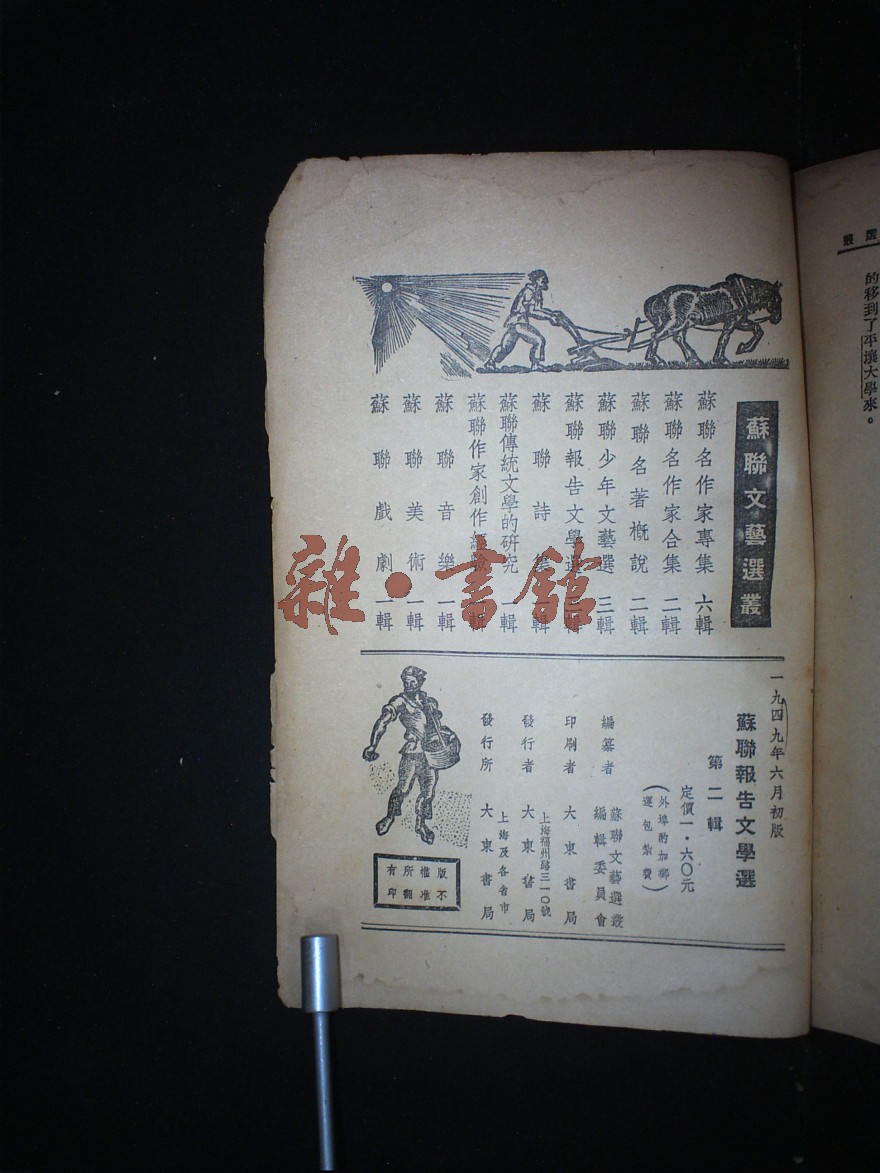 叢選
的移到了平壤大學來。
蘇聯文藝選叢
蘇聯名作家專集 六輯
蘇聯名作家合集 二輯
蘇聯名著概說 二輯
蘇聯少年文藝選 三輯
蘇聯報告文學選 輯
蘇聯詩 輯
蘇聯傳統文學的研究 一輯
蘇聯作家創作經驗 輯
蘇聯音樂 一輯
蘇聯美術 一輯
蘇聯戲劇 一輯
雜·書館
一九四九年六月初版
蘇聯報告文學選
第二輯
定價一·六〇元
(外埠酌加郵
運包紮費)
編纂者 蘇聯文藝選叢
編輯委員會
印刷者 大東書局
上海福州路三一〇號
發行者 大東書局
上海及各省市
發行所 大東書局
版權所有
不准翻印